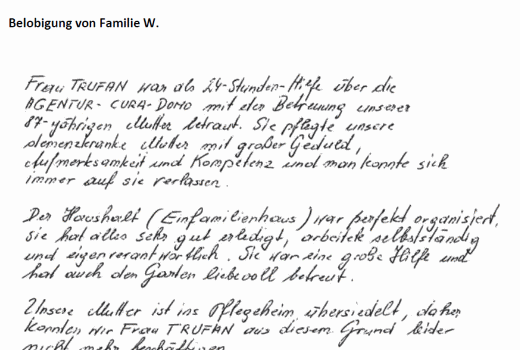 Belobigung von Familie W.
Frau TRUFAN war als 24-Stunden-Hilfe über die
AGENTUR-CURA-DOMO mit der Betreuung unserer
87-jährigen Mutter betraut. Sie pflegte unsere
demenzkranke Mutter mit großer Geduld,
Aufmerksamkeit und Kompetenz und man konnte sich
immer auf sie verlassen.
Der Haushalt (Einfamilienhaus) war perfekt organisiert,
sie hat alles sehr gut erledigt, arbeitete selbstständig
und eigenverantwortlich. Sie war eine große Hilfe und
hat auch den Garten liebevoll betreut.
Unsere Mutter ist ins Pflegeheim übersiedelt, daher
konnten wir Frau TRUFAN aus diesem Grund leider
nicht mehr beschäftigen